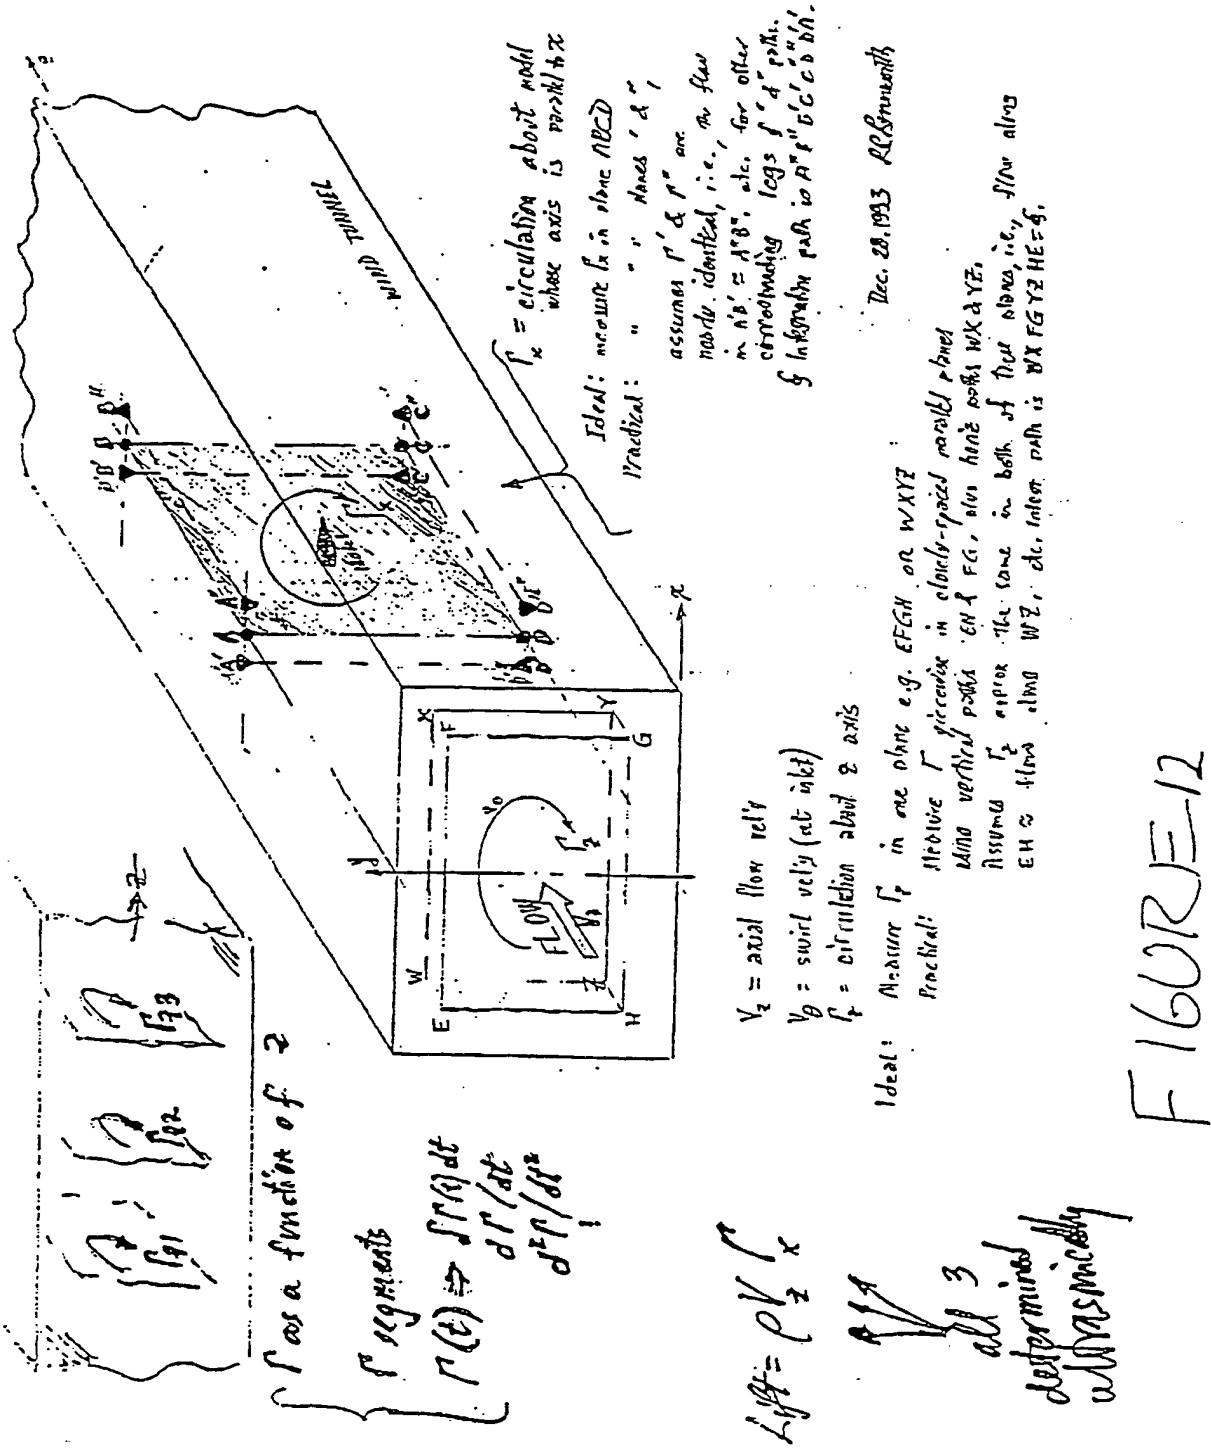 Γz1
Γz2
Γz3
z
Γ as a function of z
Γ segments
Γ(t) ⇒ ∫Γ(t)dt
dΓ/dt
d²Γ/dt²
Lift = ρVz Γx
all 3
determined
ultrasonically
WIND TUNNEL
A' A A"
B' B B"
C' C C"
D' D D"
Model
Γx
W X
E F
y
Vθ
FLOW
Vz
Γz
Z Y
H G
x
Γx = circulation about model
whose axis is parallel to x
Ideal: measure Γx in plane ABCD
Practical: " " " planes ' & ",
assumes Γ' & Γ" are
nearly identical, i.e., the flow
in A'B' ≈ A"B", etc. for other
corresponding legs of ' & " paths.
Dec. 28, 1993
Vz = axial flow vel'y
Vθ = swirl vel'y (at inlet)
Γz = circulation about z axis
Ideal: Measure Γz in one plane e.g. EFGH or WXYZ
Practical: Measure Γ piecewise in closely-spaced parallel planes
using vertical paths EH & FG, plus horiz paths WX & YZ.
Assumes Γz approx the same in both of these planes, i.e., flow along
EH ≈ flow along WZ, etc. Integr path is WXFGYZHE = ∮.
FIGURE-12